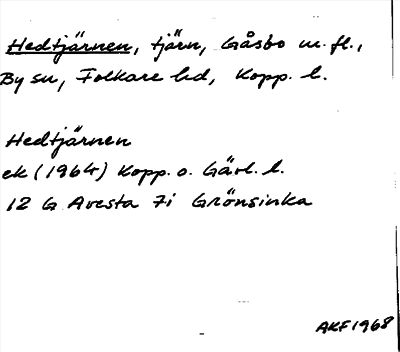 Hedtjärnen, tjärn, Gåsbo m. fl.,
By sn, Folkare hd, Kopp. l.
Hedtjärnen
ek (1964) Kopp. o. Gävl. l.
12 G Avesta 7i Grönsinka
AKF 1968